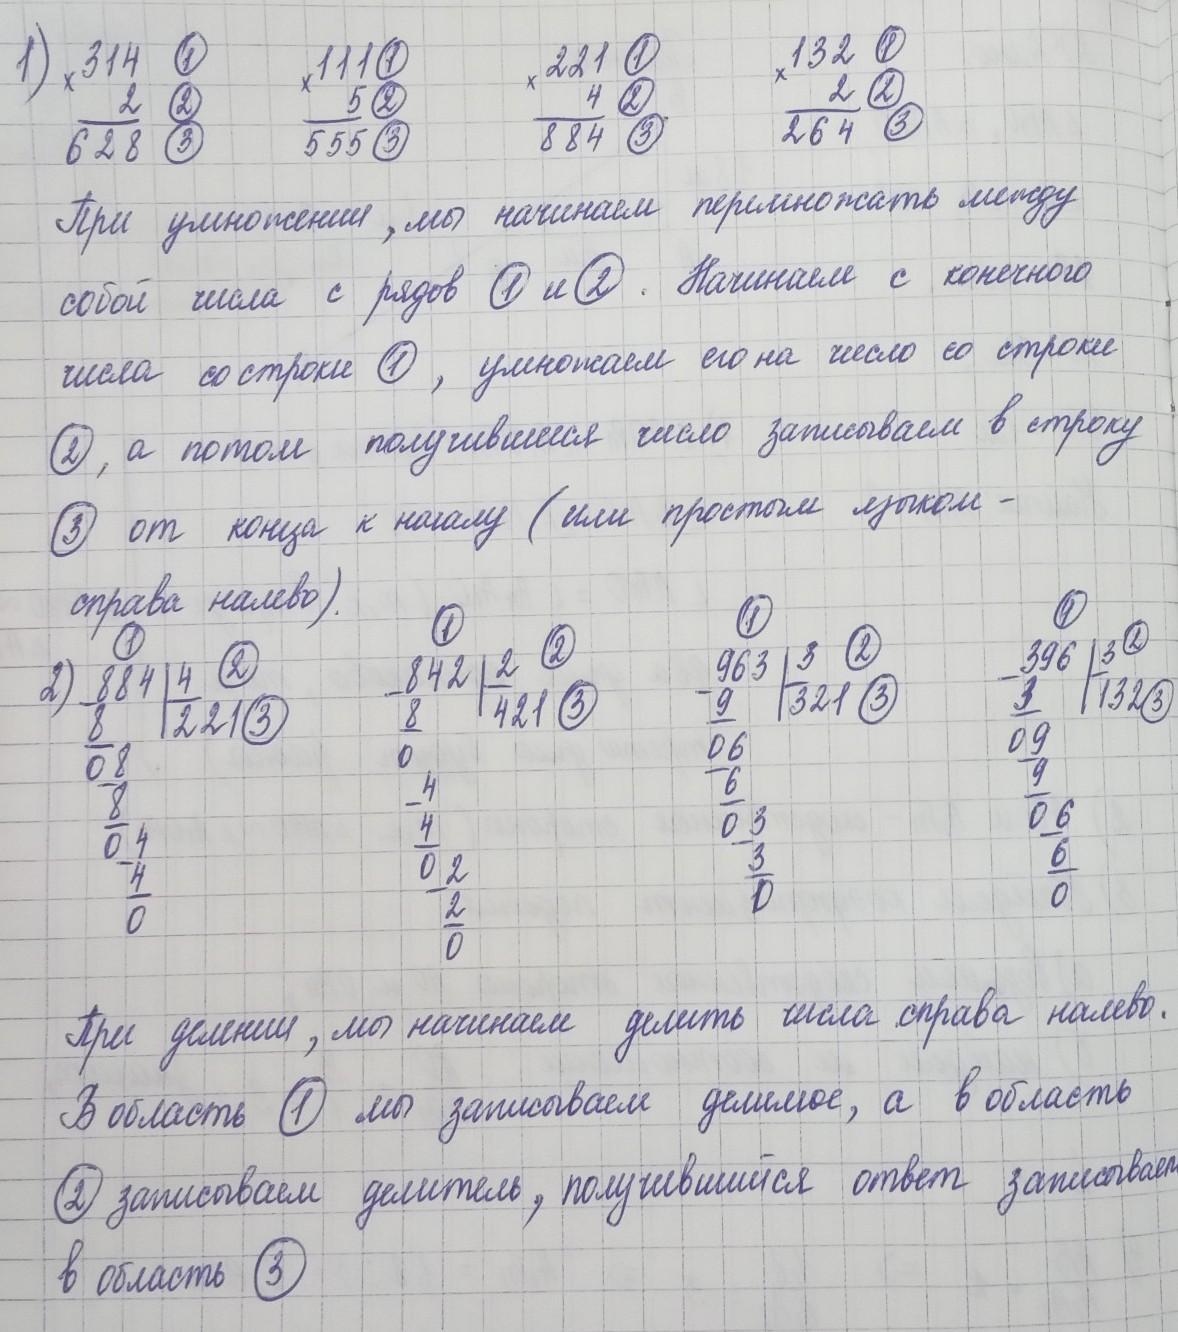 1) ×314 ① ×111① ×221 ① ×132 ①
2 ② 5② 4 ② 2 ②
628 ③ 555③ 884 ③ 264 ③
При умножении, мы начинаем перемножать между
собой числа с рядов ① и ②. Начинаем с конечного
числа со строки ①, умножаем его на число со строки
②, а потом получившееся число записываем в строку
③ от конца к началу (или простым языком -
справа налево).
① ① ① ①
2) -884 | 4 ② -842 | 2 ② -963 | 3 ② -396 | 3 ②
8 221③ 8 421③ 9 321③ 3 132③
08 0 06 09
-8 -4 -6 -9
04 4 03 06
-4 02 -3 6
0 -2 0 0
0
При делении, мы начинаем делить числа справа налево.
В область ① мы записываем делимое, а в область
② записываем делитель, получившийся ответ записываем
в область ③